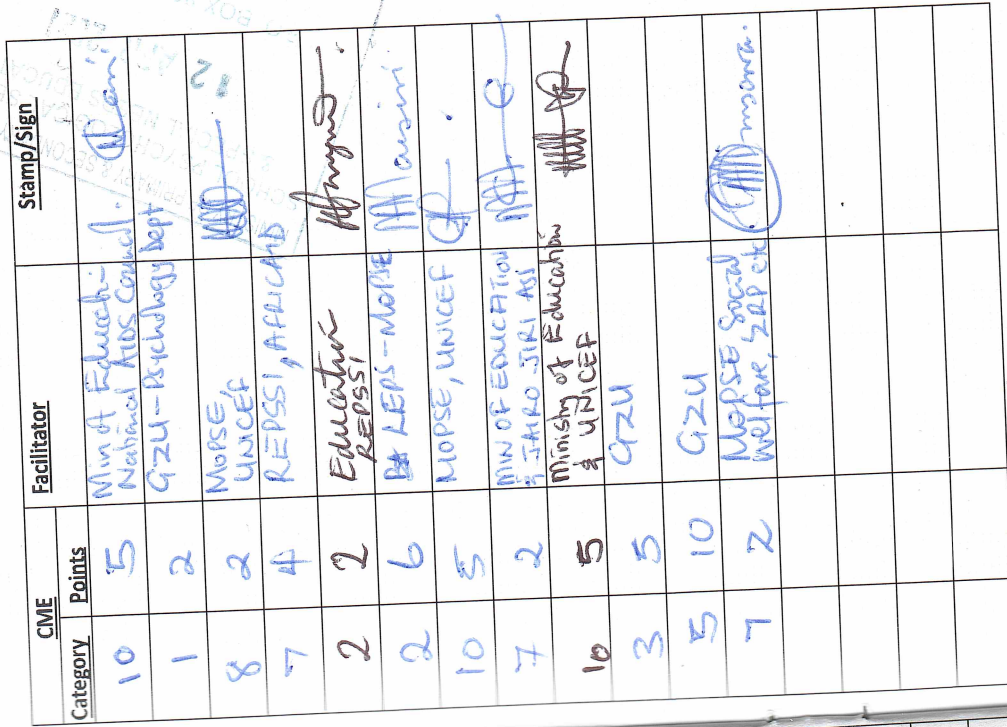 CME
Category Points Facilitator Stamp/Sign
10 5 Min of Education
National AIDS Council.
1 2 GZU - Psychology Dept
8 2 MOPSE,
UNICEF
7 4 REPSSI, AFRICAID
2 2 Education
REPSSI,
2 6 LEPS - MOPSE
10 5 MOPSE, UNICEF
7 2 MIN OF EDUCATION
& JAIRO JIRI ASS
10 5 Ministry of Education
& UNICEF
3 5 GZU
5 10 GZU
7 2 MOPSE Social
Welfare, ZRP etc
12
BOX